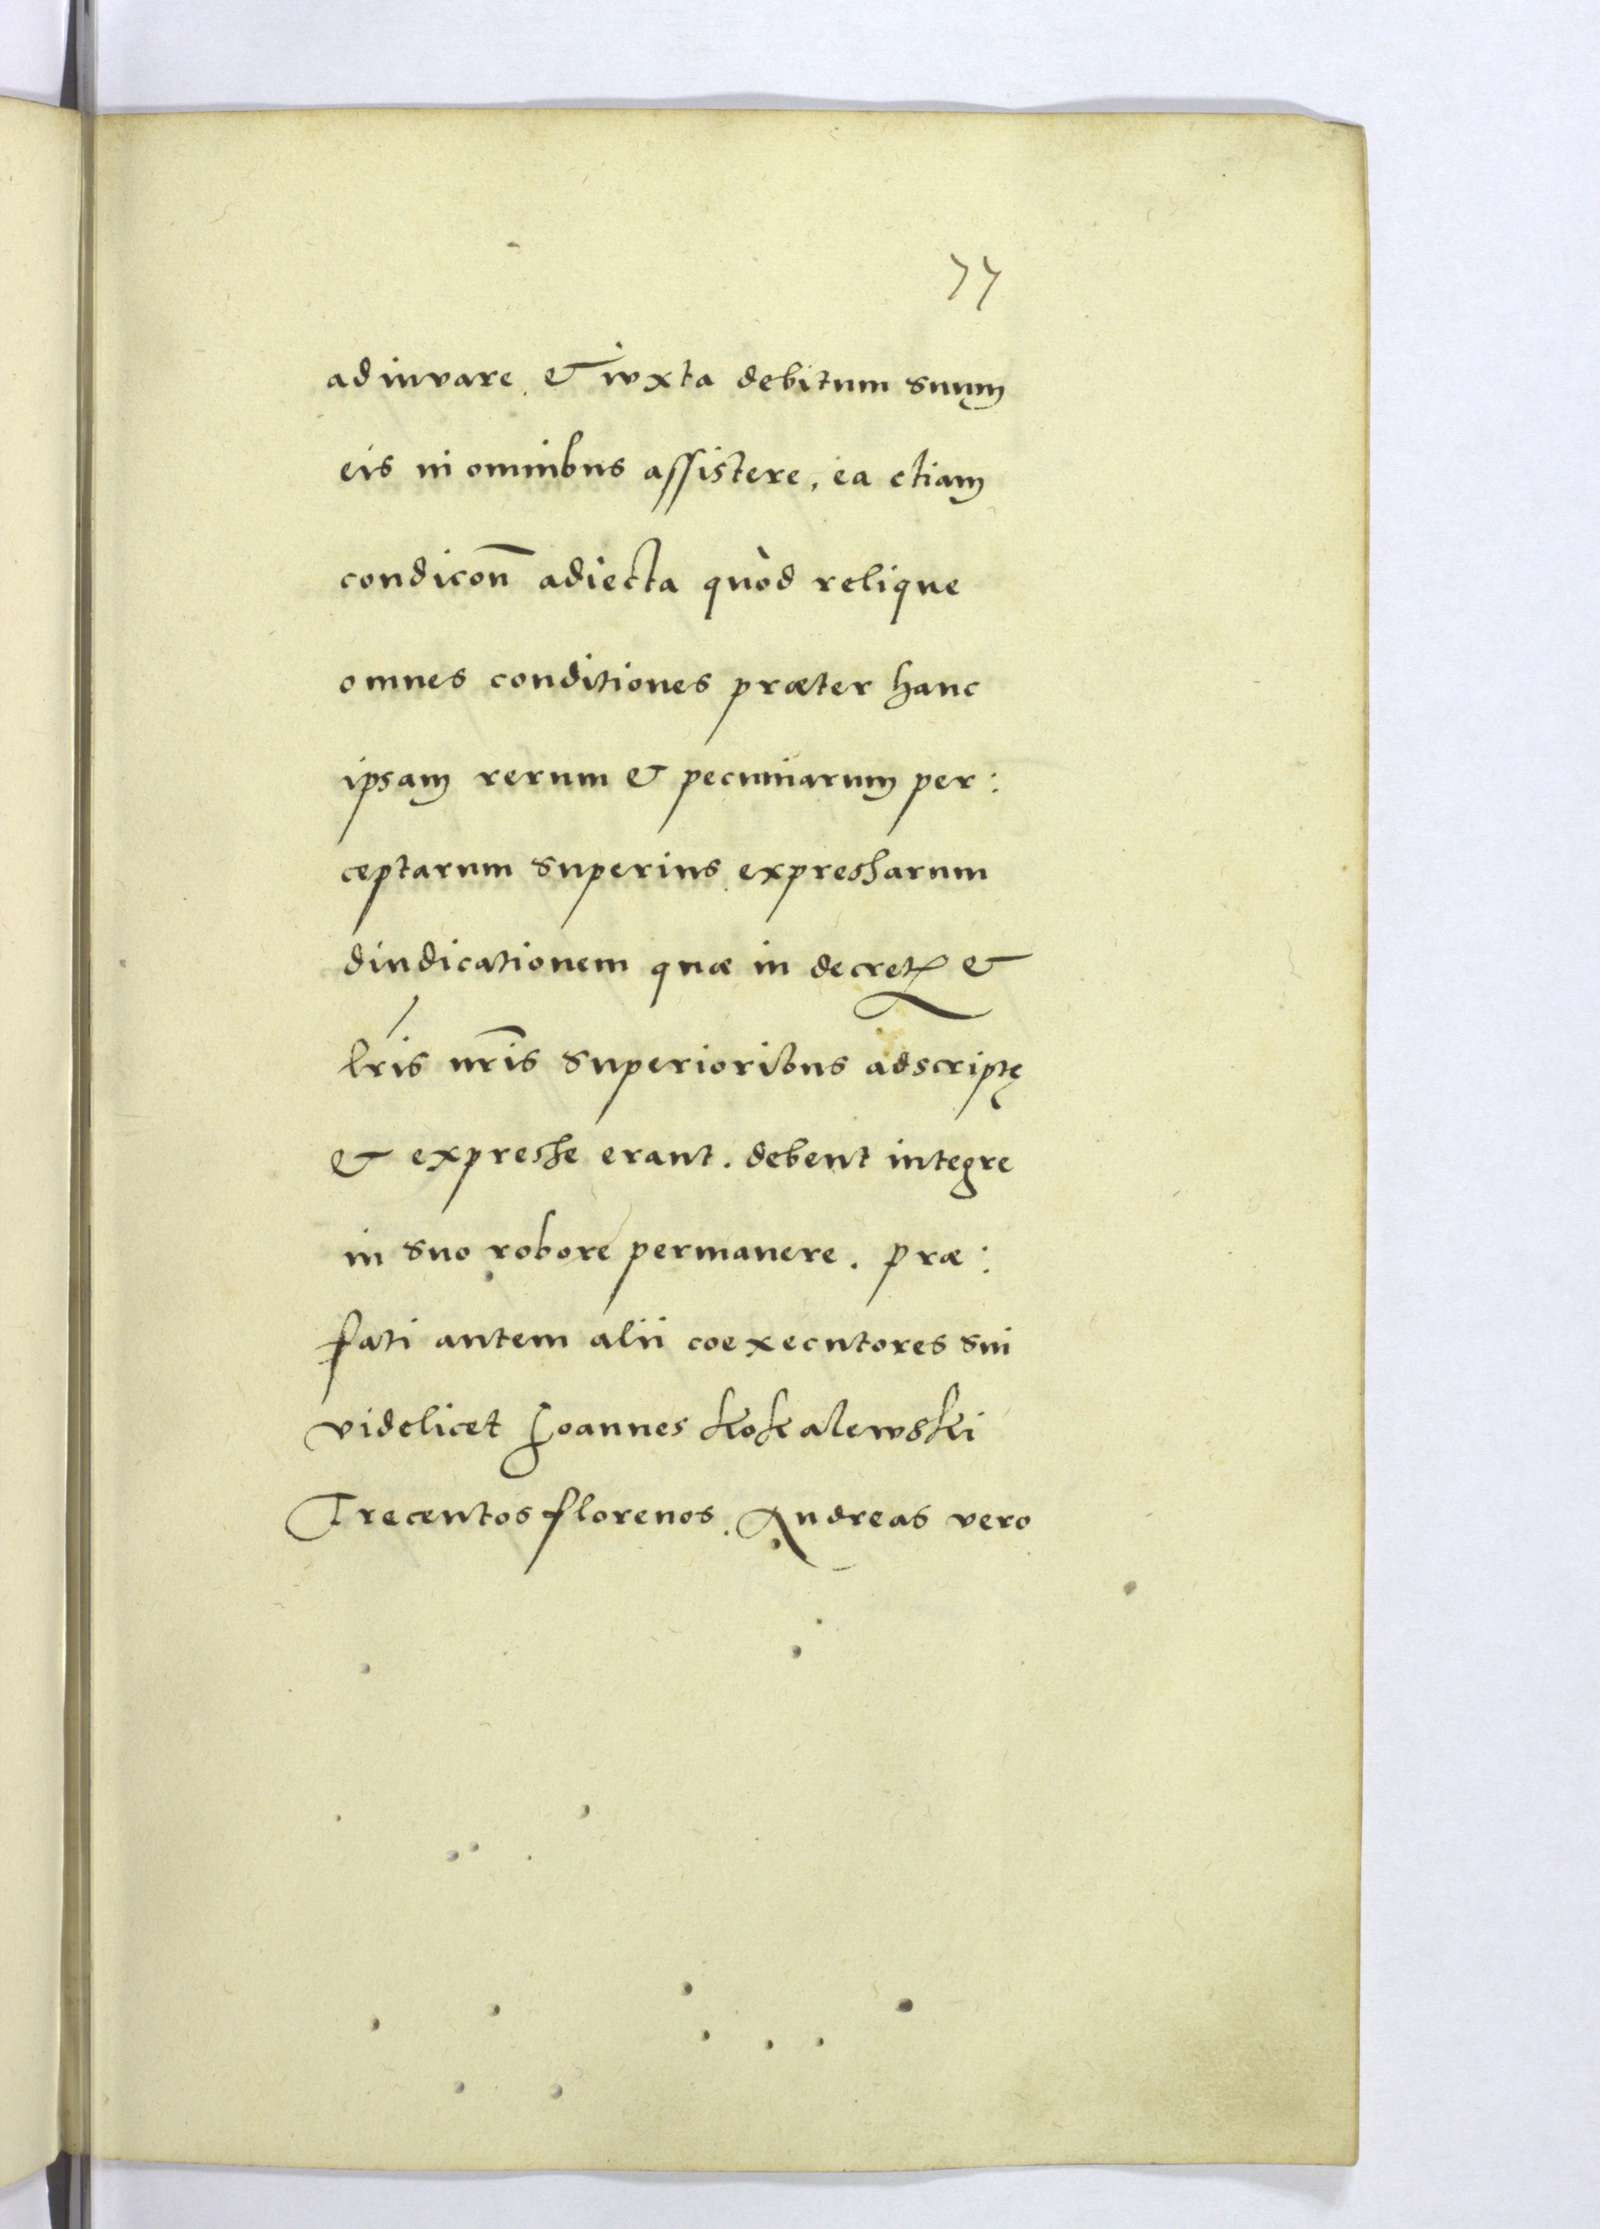 77
adiuvare. & iuxta debitum suum
eis in omnibus assistere, ea etiam
condicoñ adiecta quòd relique
omnes conditiones præter hanc
ipsam rerum & pecuniarum per:
ceptarum superius expressarum
diudicationem quæ in decret &
lris nr̃is superioribus adscriptę
& expresse erant. debent integre
in suo robore permanere. præ:
fati autem alii coexecutores sui
videlicet Joannes Kokalewski
Trecentos florenos. Andreas vero